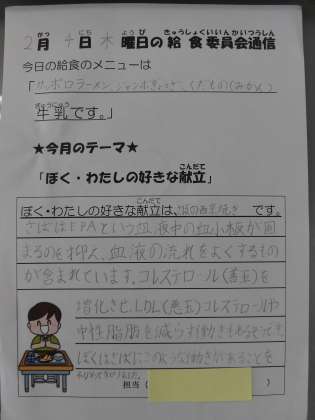 2月 4日 木曜日の給食委員会通信
今日の給食のメニューは
「サッポロラーメン、ジャンボぎょうざ、くだもの(みかん)
牛乳です。」
★今月のテーマ★
「ぼく・わたしの好きな献立」
ぼく・わたしの好きな献立は、鯖の西京焼き です。
さばはEPAという血液中の血小板が固
まるのを抑え、血液の流れをよくするもの
が含まれています。コレステロール(善玉)を
増化させ、LDL(悪玉)コレステロールや
中性脂肪を減らす働きもあるそうです。
ぼくはさばにこのような働きがあることを
担当( )